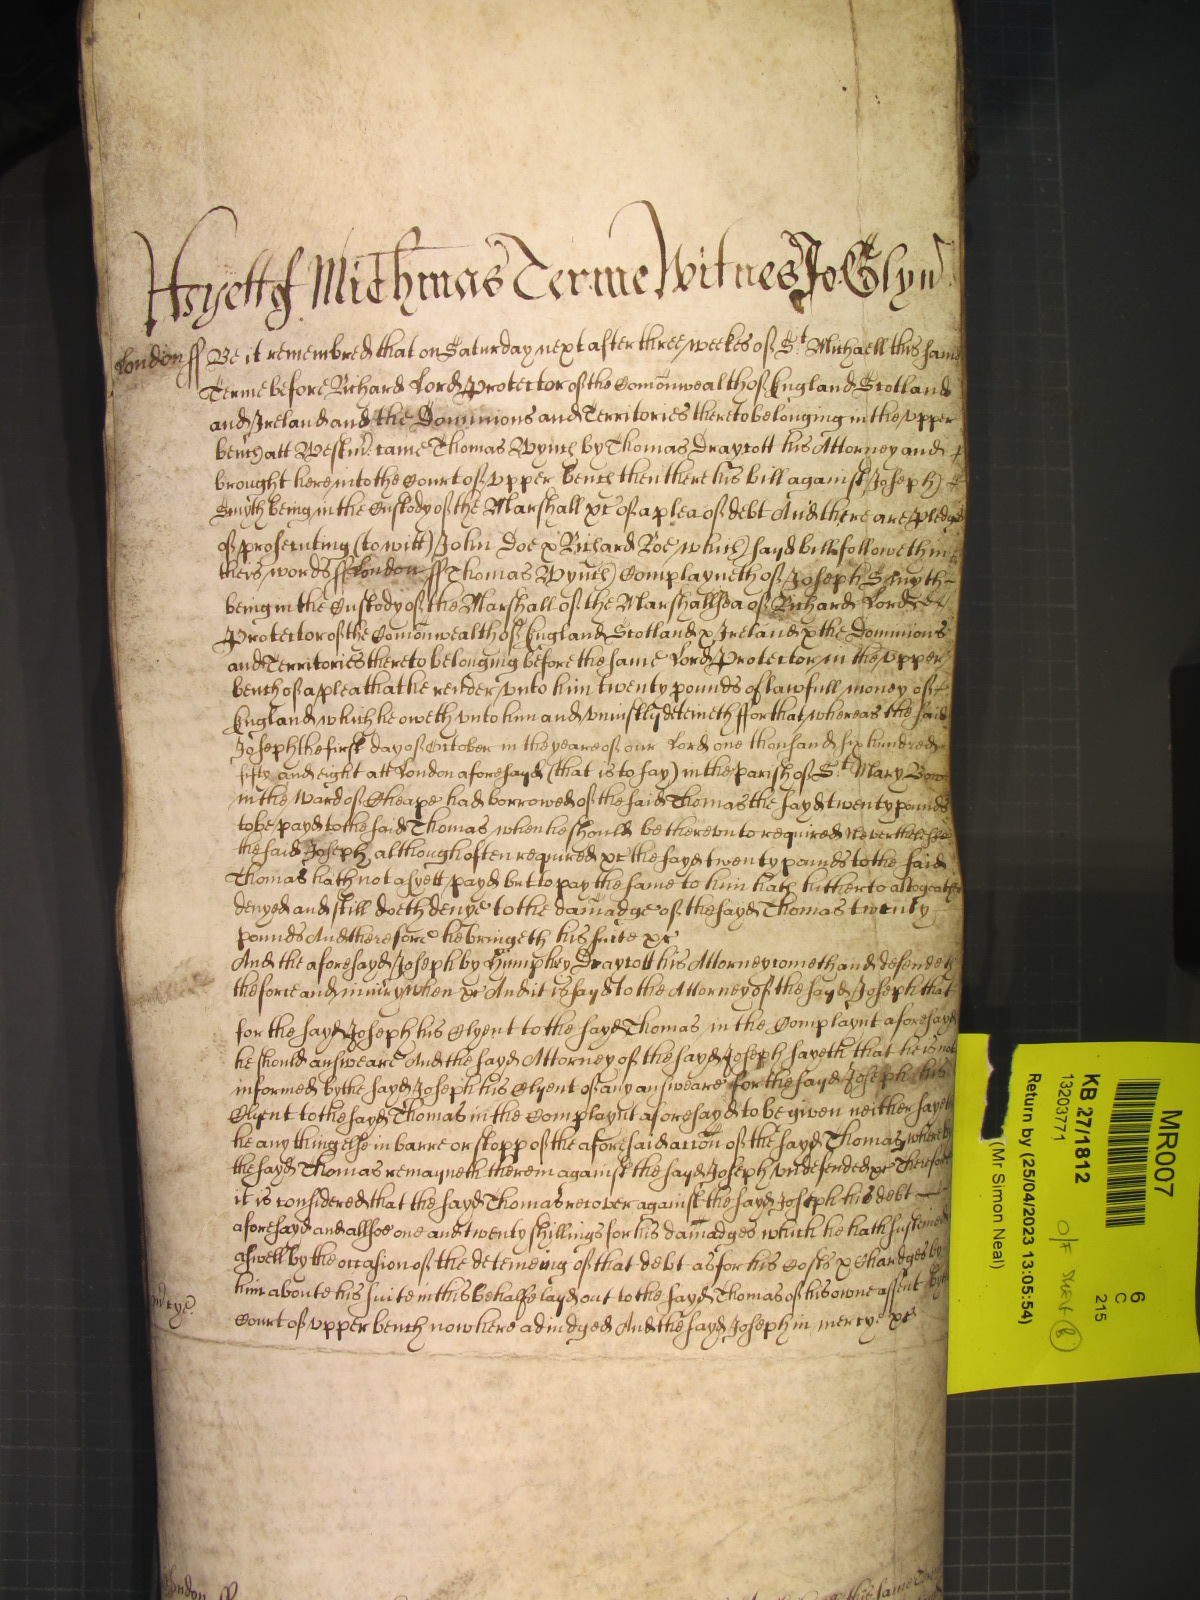 Hyett ss Mich'mas Terme Witnes Jo Glyn
London ss Be it remembred that on Saturday next after three weekes of St. Michaell this same
Terme before Richard Lord Protector of the Comonwealth of England Scotland
and Ireland and the Dominions and Territories thereto belonging in the upper
bench att Westm'r came Thomas Wynch by Thomas Draycott his Attorney and
brought here into the Court of upper bench then there his bill against Joseph
Smyth being in the Custody of the Marshall &c of a plea of debt And there are pledges
of prosecuting (to witt) John Doe & Richard Roe which sayd bill followeth in
theis words ss London ss Thomas Wynch Complayneth of Joseph Smyth
being in the Custody of the Marshall of the Marshallsea of Richard Lord
Protector of the Comonwealth of England Scotland & Ireland & the Dominions
and Territories thereto belonging before the same Lord Protector in the upper
bench of a plea that he render unto him twenty pounds of lawfull money of
England which he oweth unto him and uniustly deteineth ffor that whereas the said
Joseph the first day of October in the yeare of our Lord one thousand six hundred
fifty and eight att London aforesayd (that is to say) in the parish of St. Mary Bow
in the Ward of Cheape had borrowed of the said Thomas the sayd twenty pounds
to be payd to the said Thomas when he should be thereunto required Neverthelesse
the said Joseph although often required &c the sayd twenty pounds to the said
Thomas hath not as yett payd but to pay the same to him hath hitherto altogeather
denyed and still doeth denye to the damadge of the sayd Thomas twenty
pounds And therefore he bringeth his suite &c
And the aforesayd Joseph by Humphrey Draycott his Attorney cometh and defendeth
the force and iniury when &c And it is sayd to the Attorney of the sayd Joseph that
for the sayd Joseph his Clyent to the sayd Thomas in the Complaynt aforesayd
he should answeare And the sayd Attorney of the sayd Joseph sayeth that he is not
informed by the sayd Joseph his Clyent of any answeare for the sayd Joseph his
Clyent to the sayd Thomas in the Complaynt aforesayd to be given neither sayeth
he any thing else in barre or stopp of the aforesaid action of the sayd Thomas whereby
the sayd Thomas remayneth therein against the sayd Joseph undefended &c Therefore
it is considered that the sayd Thomas recover against the sayd Joseph his debt
aforesayd and allsoe one and twenty shillings for his damadges which he hath susteined
aswell by the occasion of the deteineing of that debt as for his Costs & Chardges by
him aboute his suite in this behalfe layd out to the sayd Thomas of his owne assent by the
Court of upper bench now here adiudged And the sayd Joseph in mercye &c
m'cye
London ss
this same Terme
MR007
6
C
215
KB 27/1812
13203771
Return by (25/04/2023 13:05:54)
(Mr Simon Neal)